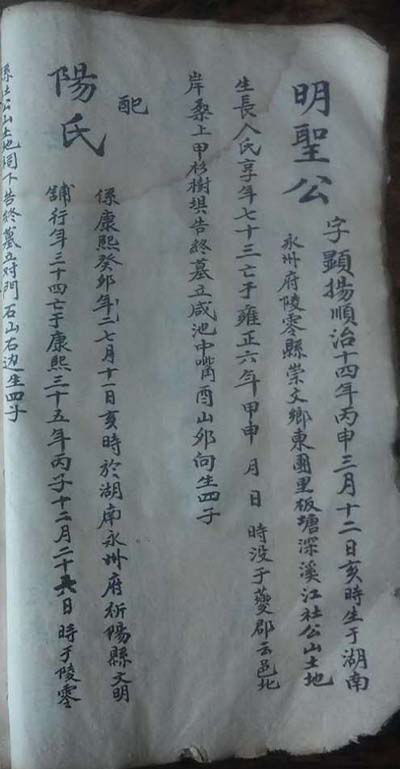 明聖公
字顯揚順治十四年丙申三月十二日亥時生于湖南
永州府陵零縣崇文鄉東團里板塘深溪江社公山土地
生長人氏享年七十三亡于雍正六年甲申 月 日 時没于夔郡云邑北
岸桑上甲杉樹垻告終墓立咸池中嘴酉山夘向生四子
配
陽氏
係康熙癸卯年二七月十一日亥時於湖南永州府祈陽縣文明
舖行年三十四亡于康熙三十五年丙子十二月二十六日 時于陵零
縣社公山土地祠下告終墓立对門石山右边生四子